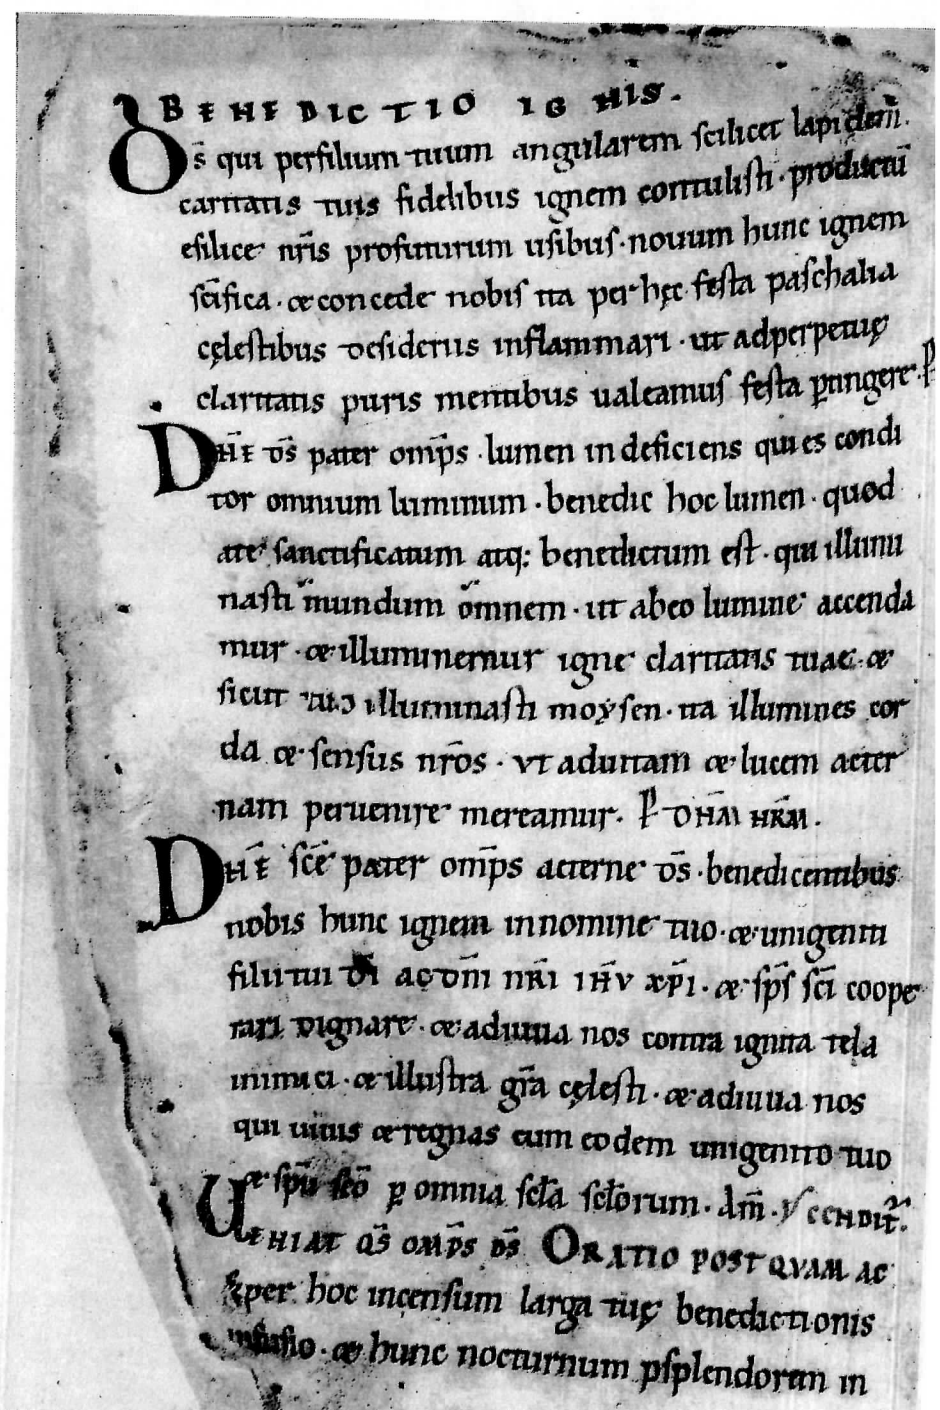 BENEDICTIO IGNIS.
Ds̄ qui perfilium tuum angularem scilicet lapidem̄.
caritatis tuis fidelibus ignem contulisti · productū
esilice nr̄is profuturum usibus · novum hunc ignem
sc̄ifica · & concede nobis ita per hęc festa paschalia
cęlestibus desideriis inflammari · ut adperpetuę
claritatis puris mentibus ualeamus festa ꝑtingere · P̄
Dn̄e ds̄ pater omp̄s · lumen indeficiens qui es condi
tor omnium luminum · benedic hoc lumen · quod
ate sanctificatum atq: benedictum est · qui illumi
nasti mundum omnem · ut abeo lumine accenda
mur · & illuminemur igne claritatis tuae · &
sicut illuminasti moysen · ita illumines cor
da & sensus nr̄os · ut aduitam & lucem aeter
nam peruenire mereamur. P̄ DN̄M NR̄M.
Dn̄e sc̄e pater omp̄s aeterne ds̄ · benedicentibus
nobis hunc ignem innomine tuo · & unigeniti
filii tui dī ac dn̄i nr̄i ihū xp̄i · & sp̄s sc̄i coope
rari dignare · & adiuua nos contra ignita tela
inimici · & illustra gr̄a cęlesti · & adiuua nos
qui uiuis & regnas cum eodem unigenito tuo
& sp̄u sc̄o ꝑ omnia sc̄la sc̄lorum · Am̄ · CENDIT̄.
UENIAT QS̄ OMP̄S DS̄ ORATIO POSTQVAM AC
per hoc incensum larga tuę benedictionis
infusio · & hunc nocturnum ꝑsplendorem in